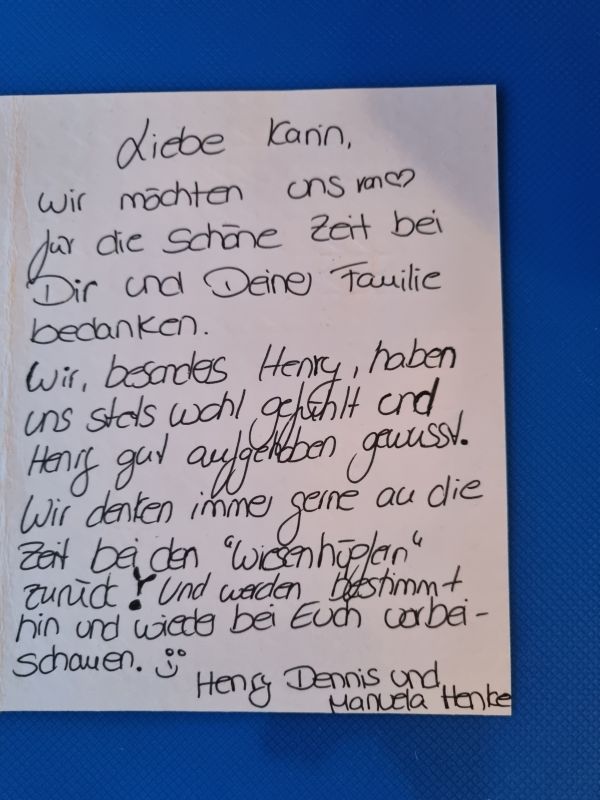 Liebe Karin,
wir möchten uns von ♡
für die schöne Zeit bei
Dir und Deiner Familie
bedanken.
Wir, besonders Henry, haben
uns stets wohl gefühlt und
Henry gut aufgehoben gewusst.
Wir denken immer gerne an die
Zeit bei den "Wiesenhüpfern"
zurück! Und werden bestimmt
hin und wieder bei Euch vorbei-
schauen. :)
Henry Dennis und
Manuela Henke